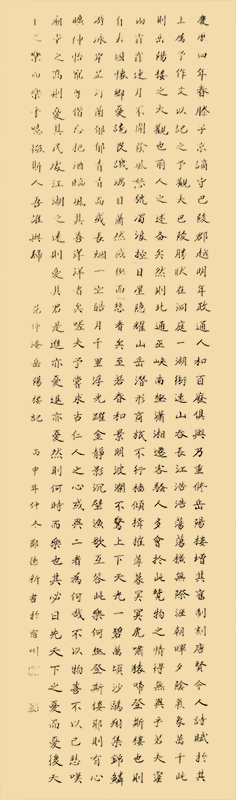 慶曆四年春滕子京謫守巴陵郡越明年政通人和百廢俱興乃重修岳陽樓增其舊制刻唐賢今人詩賦於其
上屬予作文以記之予觀夫巴陵勝狀在洞庭一湖銜遠山吞長江浩浩蕩蕩橫無際涯朝暉夕陰氣象萬千此
則岳陽樓之大觀也前人之述備矣然則北通巫峽南極瀟湘遷客騷人多會於此覽物之情得無異乎若夫霪
雨霏霏連月不開陰風怒號濁浪排空日星隱耀山岳潛形商旅不行檣傾楫摧薄暮冥冥虎嘯猿啼登斯樓也則
有去國懷鄉憂讒畏譏滿目蕭然感極而悲者矣至若春和景明波瀾不驚上下天光一碧萬頃沙鷗翔集錦鱗
游泳岸芷汀蘭郁郁青青而或長煙一空皓月千里浮光躍金靜影沉璧漁歌互答此樂何極登斯樓耶則有心
曠神怡寵辱偕忘把酒臨風其喜洋洋者矣嗟夫予嘗求古仁人之心或異二者之為何哉不以物喜不以己悲
廟堂之高則憂其民處江湖之遠則憂其君是進亦憂退亦憂然則何時而樂也其必曰先天下之憂而憂後天
下之樂而樂乎噫微斯人吾誰與歸 范仲淹岳陽樓記 丙申年仲 書於宿州